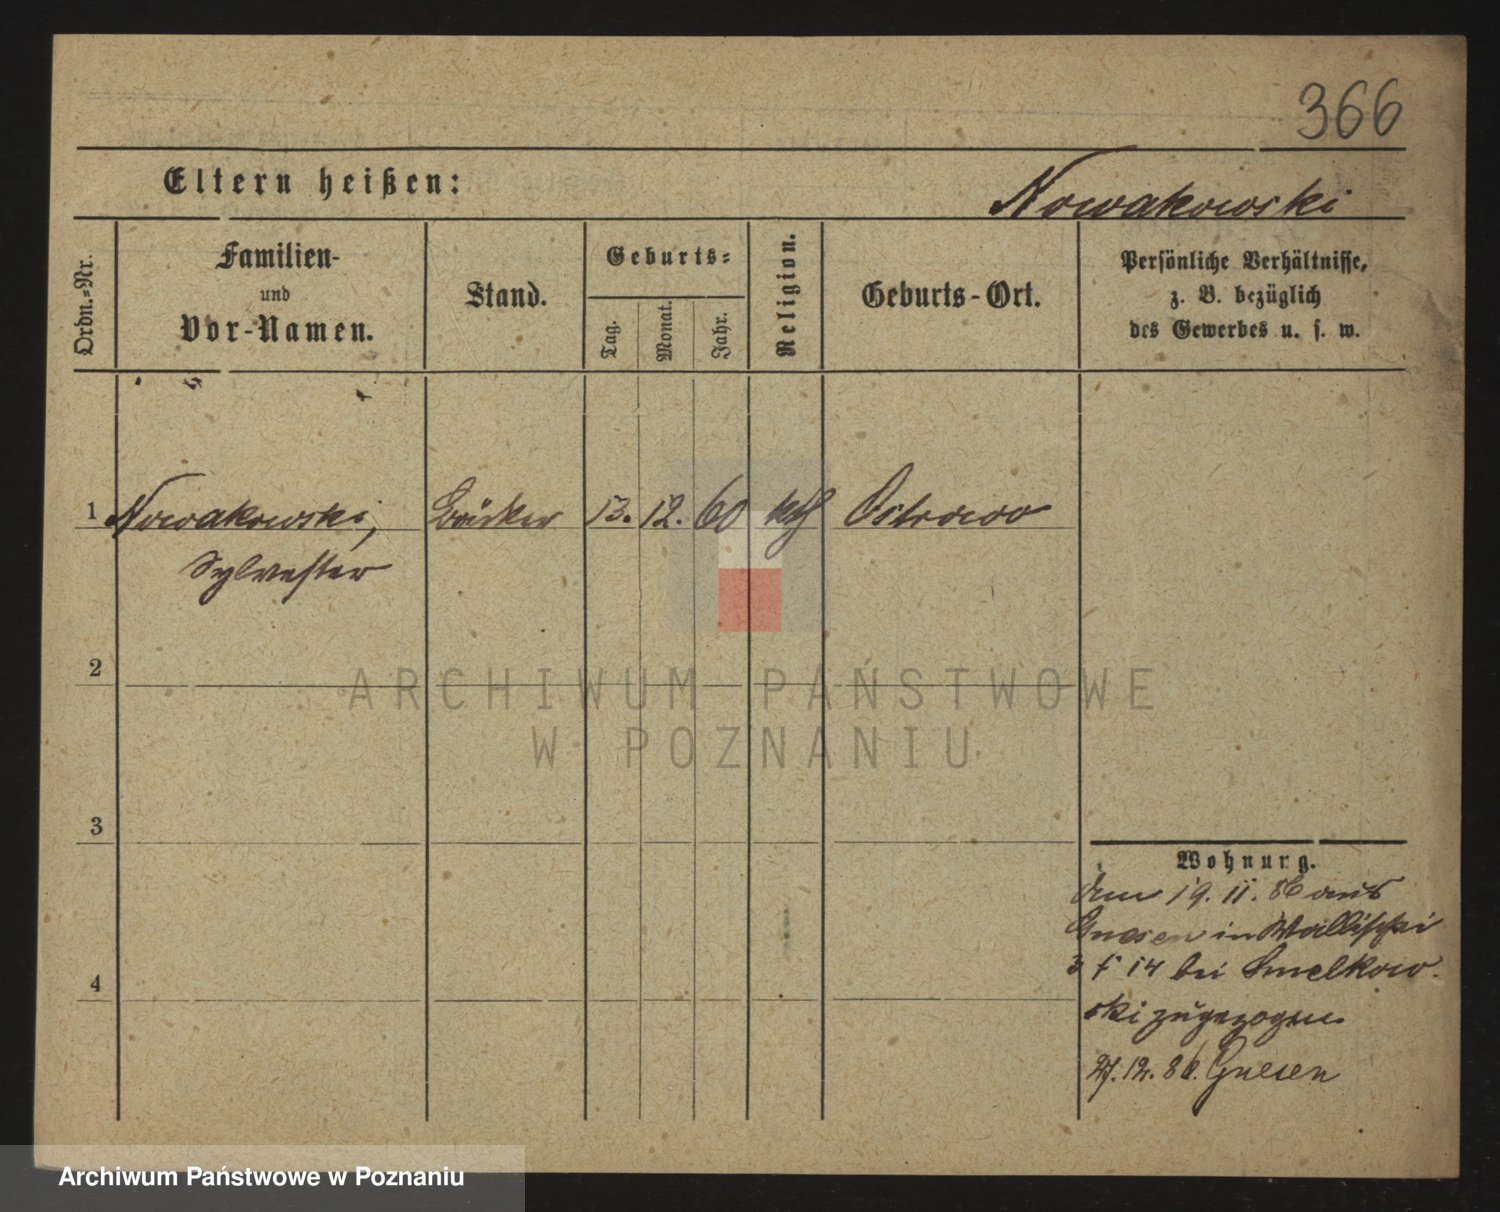 366
Eltern heißen:
Nowakowski
Ordn.-Nr.
Familien-
und
Vor-Namen.
Stand.
Geburts-
Tag.
Monat.
Jahr.
Religion.
Geburts-Ort.
Persönliche Verhältnisse,
z. B. bezüglich
des Gewerbes u. s. w.
1 Nowakowski, Bäcker 13. 12. 60 kth Ostrowo
Sylvester
2
3
4
Wohnung.
den 19. 11. 86 aus
Gnesen in Wallischei
14 bei Smelkow-
ski zugezogen
27. 12. 86. Gnesen
ARCHIWUM PAŃSTWOWE
W POZNANIU
Archiwum Państwowe w Poznaniu